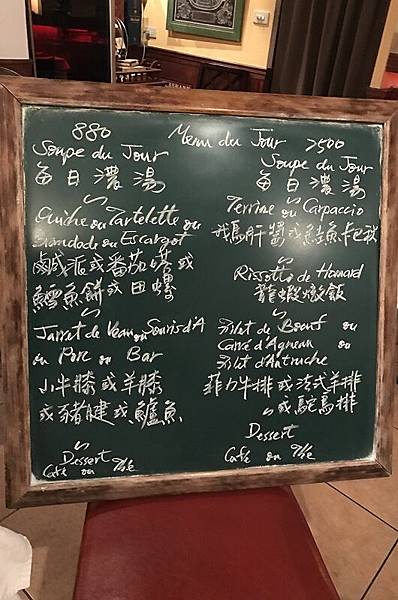 Menu du Jour
880
Soupe du Jour
每日濃湯
Quiche ou Tartelette ou
Brandade ou Escargot
鹹派或番茄塔或
鱈魚餅或田螺
Jarret de Veau ou Souris d'A
ou Porc ou Bar
小牛膝或羊膝
或豬腱或鱸魚
Dessert
Café ou Thé
>500
Soupe du Jour
每日濃湯
Terrine ou Carpaccio
鴨肝醬或鮭魚卡巴秋
Rissotto de Homard
龍蝦燉飯
Filet de Boeuf ou
Carré d'Agneau ou
Filet d'Autruche
菲力牛排或法式羊排
或鴕鳥排
Dessert
Café ou Thé